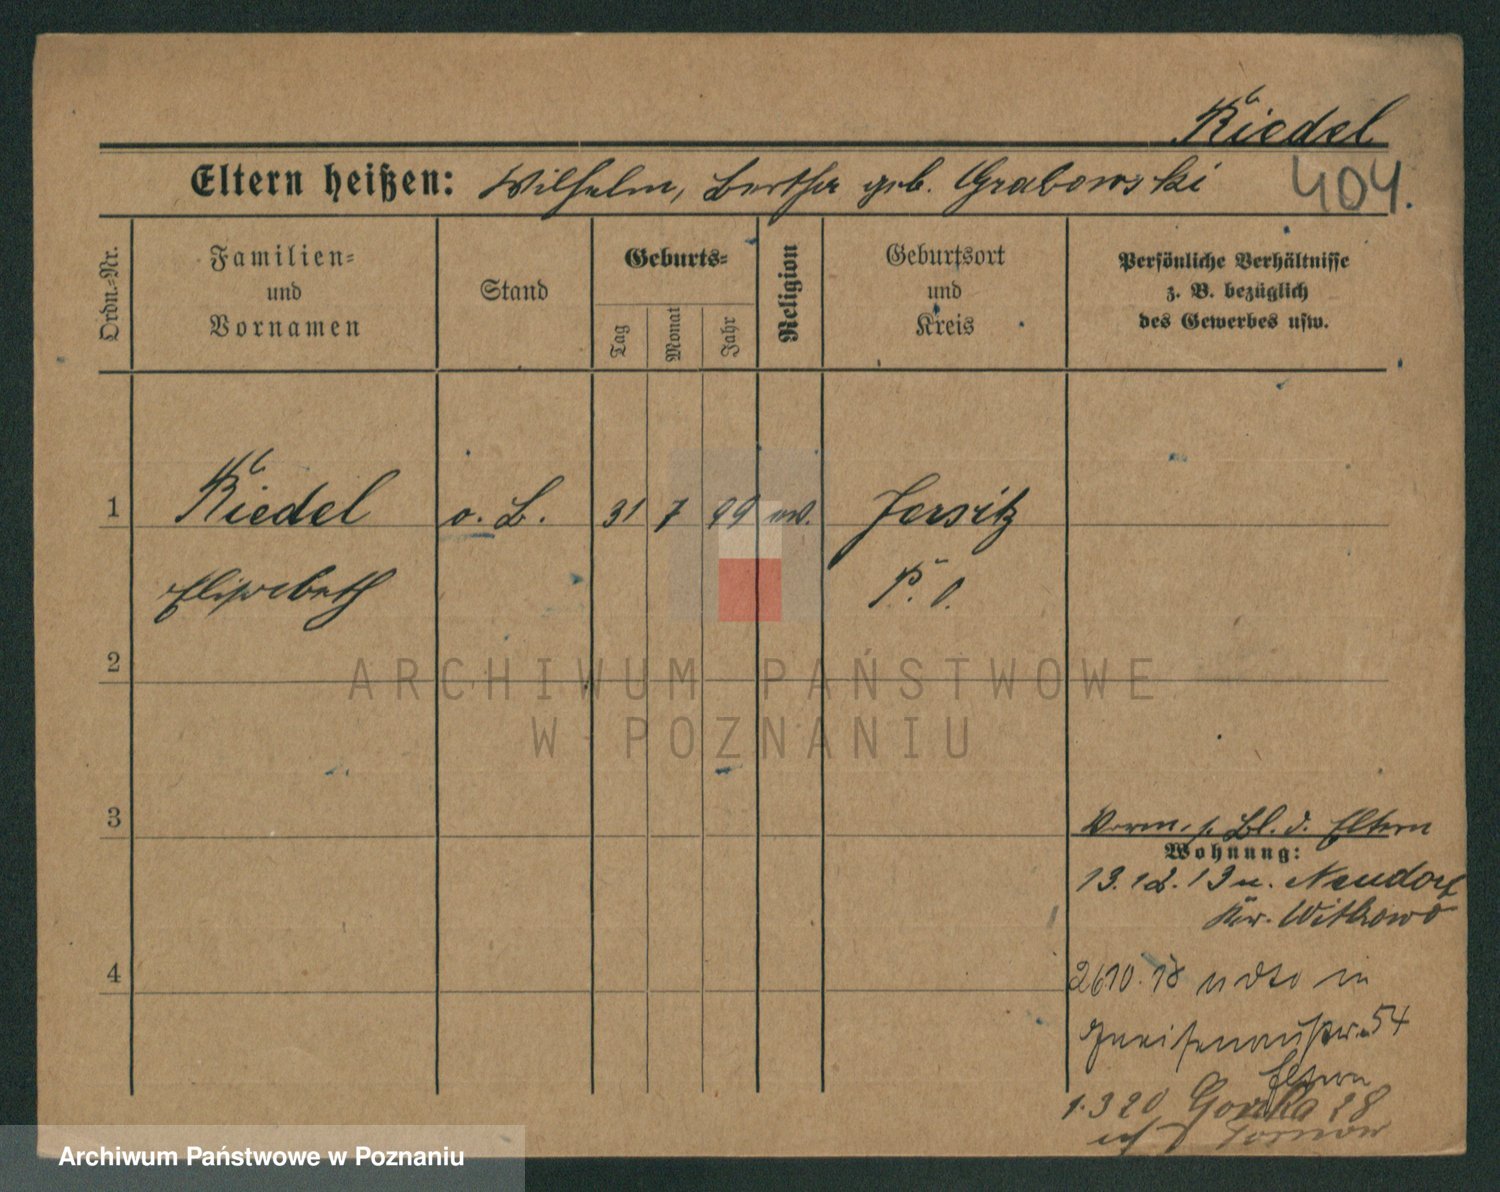 Riedel
Eltern heißen: Wilhelm, Bertha geb. Grabowski 404.
Ordn.-Nr.
Familien-
und
Vornamen
Stand
Geburts-
Tag
Monat
Jahr
Religion
Geburtsort
und
Kreis
Persönliche Verhältnisse
z. B. bezüglich
des Gewerbes usw.
1 Riedel o. B. 31 7 99 Jersitz
Elisabeth P. O.
2
ARCHIWUM PAŃSTWOWE
W POZNANIU
3
Verm. s. Bl. d. Eltern
Wohnung:
13.12.13 n. Neudorf
Kr. Witkowo
4
26.10.18 in
Gneisenaustr. 54
Eltern
1.3 20 Gorska 28
Archiwum Państwowe w Poznaniu